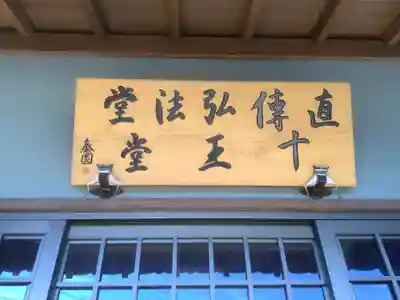 直傳弘法堂
十王堂